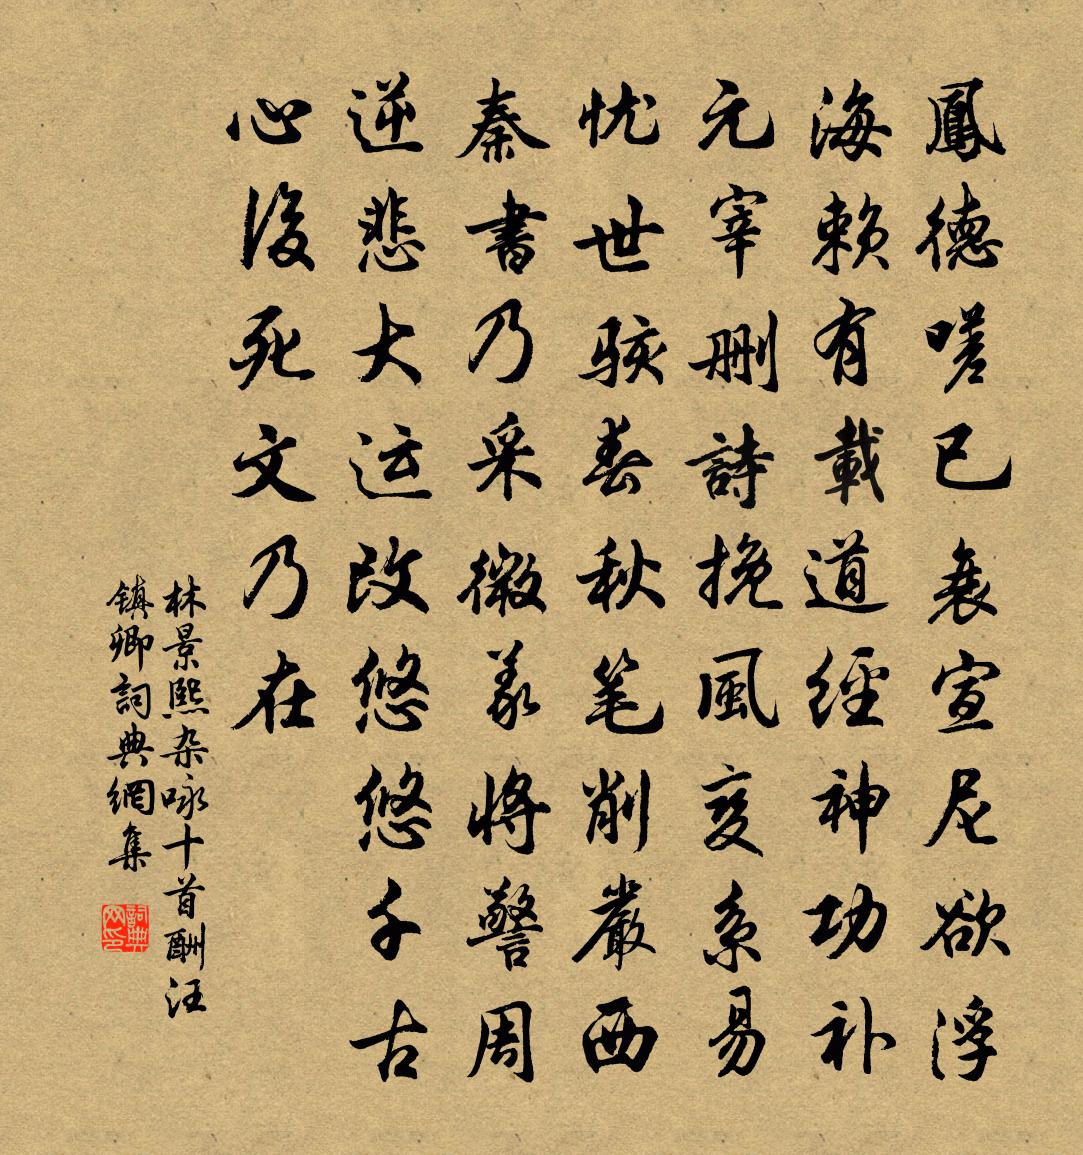 鳳德嗟已衰宣尼欲浮
海赖有載道經神功补
元宰删詩挽風变系易
忧世骇春秋笔削嚴西
秦書乃采微義将警周
逆悲大运改悠悠千古
心後死文乃在
林景熙杂咏十首酬汪
镇卿詞典網集
詞典网印